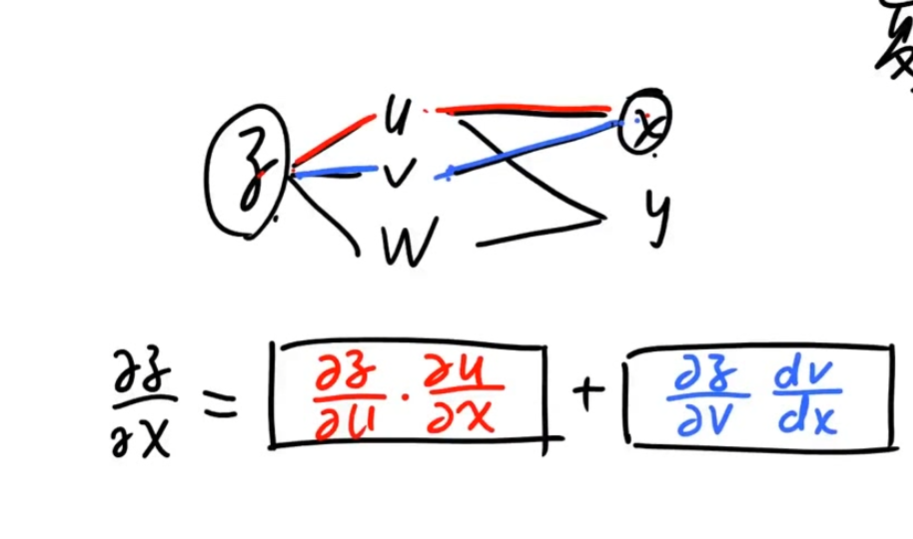 z u x
v
w y
∂z/∂x = ∂z/∂u · ∂u/∂x + ∂z/∂v dv/dx